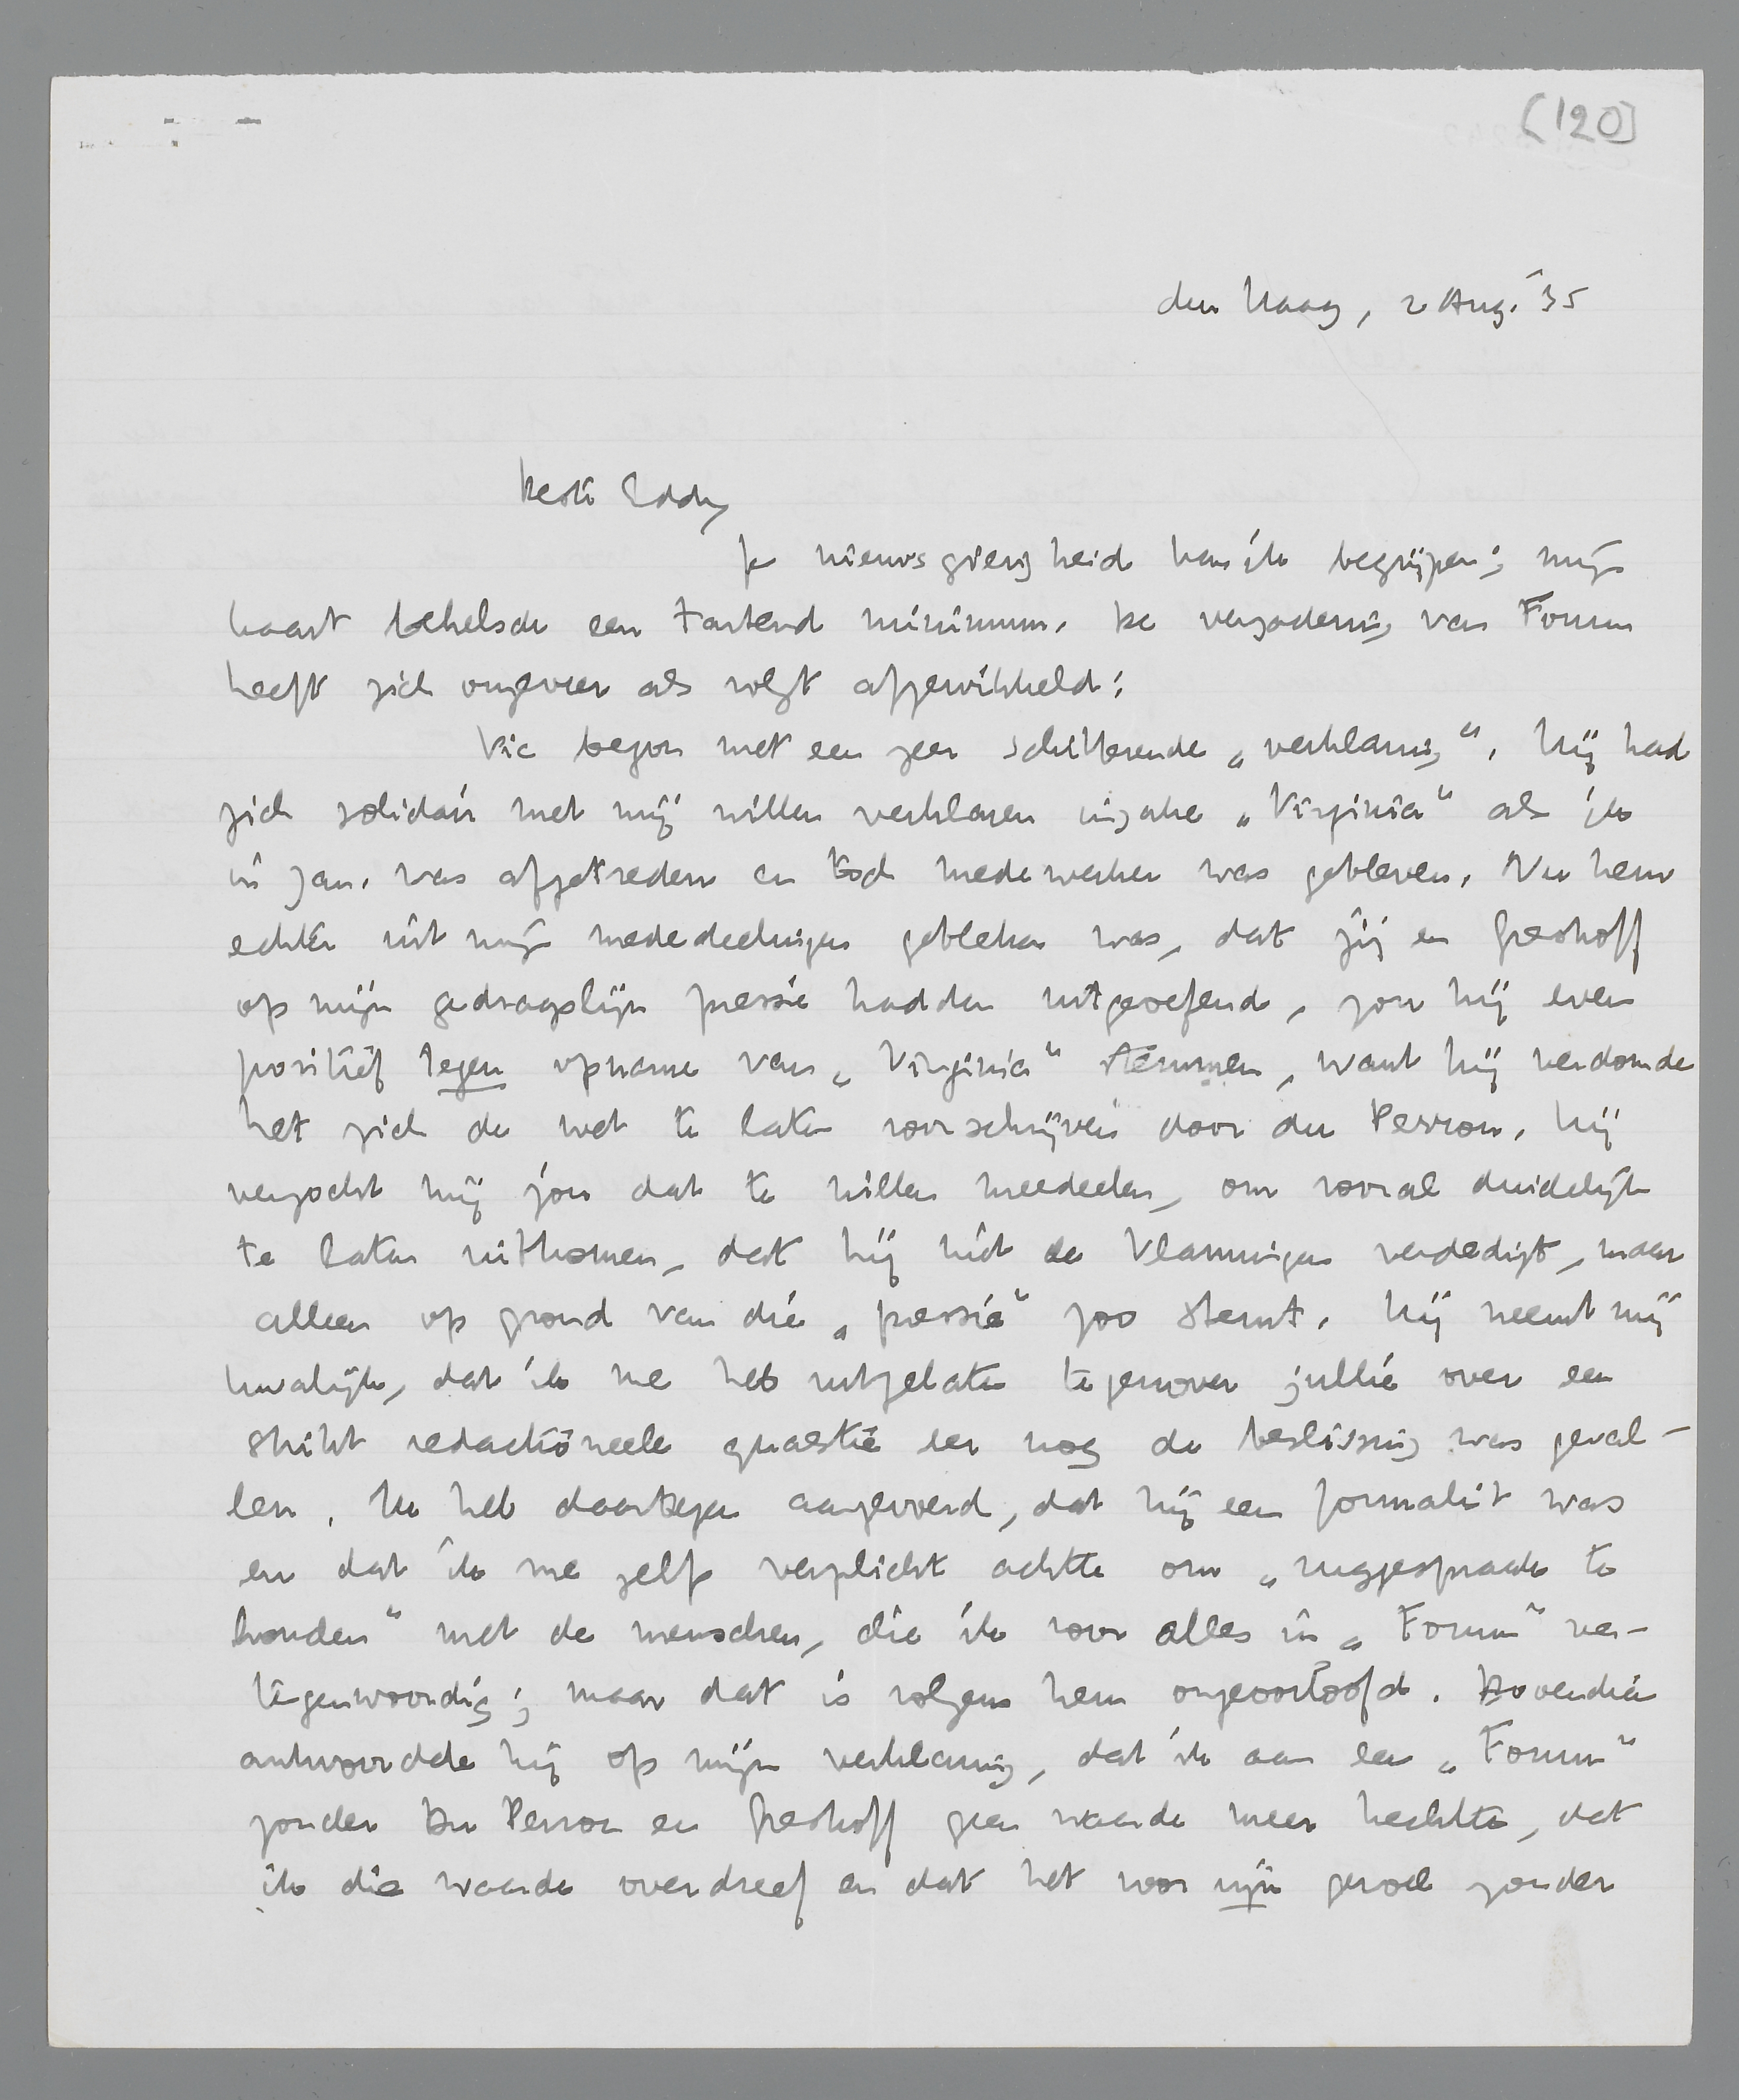 (120]
den Haag, 2 Aug. '35
Beste Eddy
Je nieuwsgierigheid kan ik begrijpen; mijn
kaart behelsde een tartend minimum. De vergadering van Forum
heeft zich ongeveer als volgt afgewikkeld:
Vic begon met een zeer schitterende „verklaring". Hij had
zich solidair met mij willen verklaren inzake „Virginia" als ik
in Jan. was afgetreden en toch medewerker was gebleven. Nu hem
echter uit mijn mededeelingen gebleken was, dat jij en Greshoff
op mijn gedragslijn pressie hadden uitgeoefend, zou hij even
positief tegen opname van „Virginia" stemmen, want hij verdomde
het zich de wet te laten voorschrijven door du Perron. Hij
verzocht mij jou dat te willen meedeelen, om vooral duidelijk
te laten uitkomen, dat hij niet de Vlamingen verdedigt, maar
alleen op grond van die „pressie" zoo stemt. Hij neemt mij
kwalijk, dat ik me heb uitgelaten tegenover jullie over een
strikt redactioneele quaestie eer nog de beslissing was geval-
len. Ik heb daartegen aangevoerd, dat hij een formalist was
en dat ik me zelfs verplicht achtte om „ruggespraak te
houden" met de menschen, die ik voor alles in „Forum" ver-
tegenwoordig; maar dat is volgens hem ongeoorloofd. Bovendien
antwoordde hij op mijn verklaring, dat ik aan een „Forum"
zonder Du Perron en Greshoff geen waarde meer hechtte, dat
ik die waarde overdreef en dat het voor zijn gevoel zonder